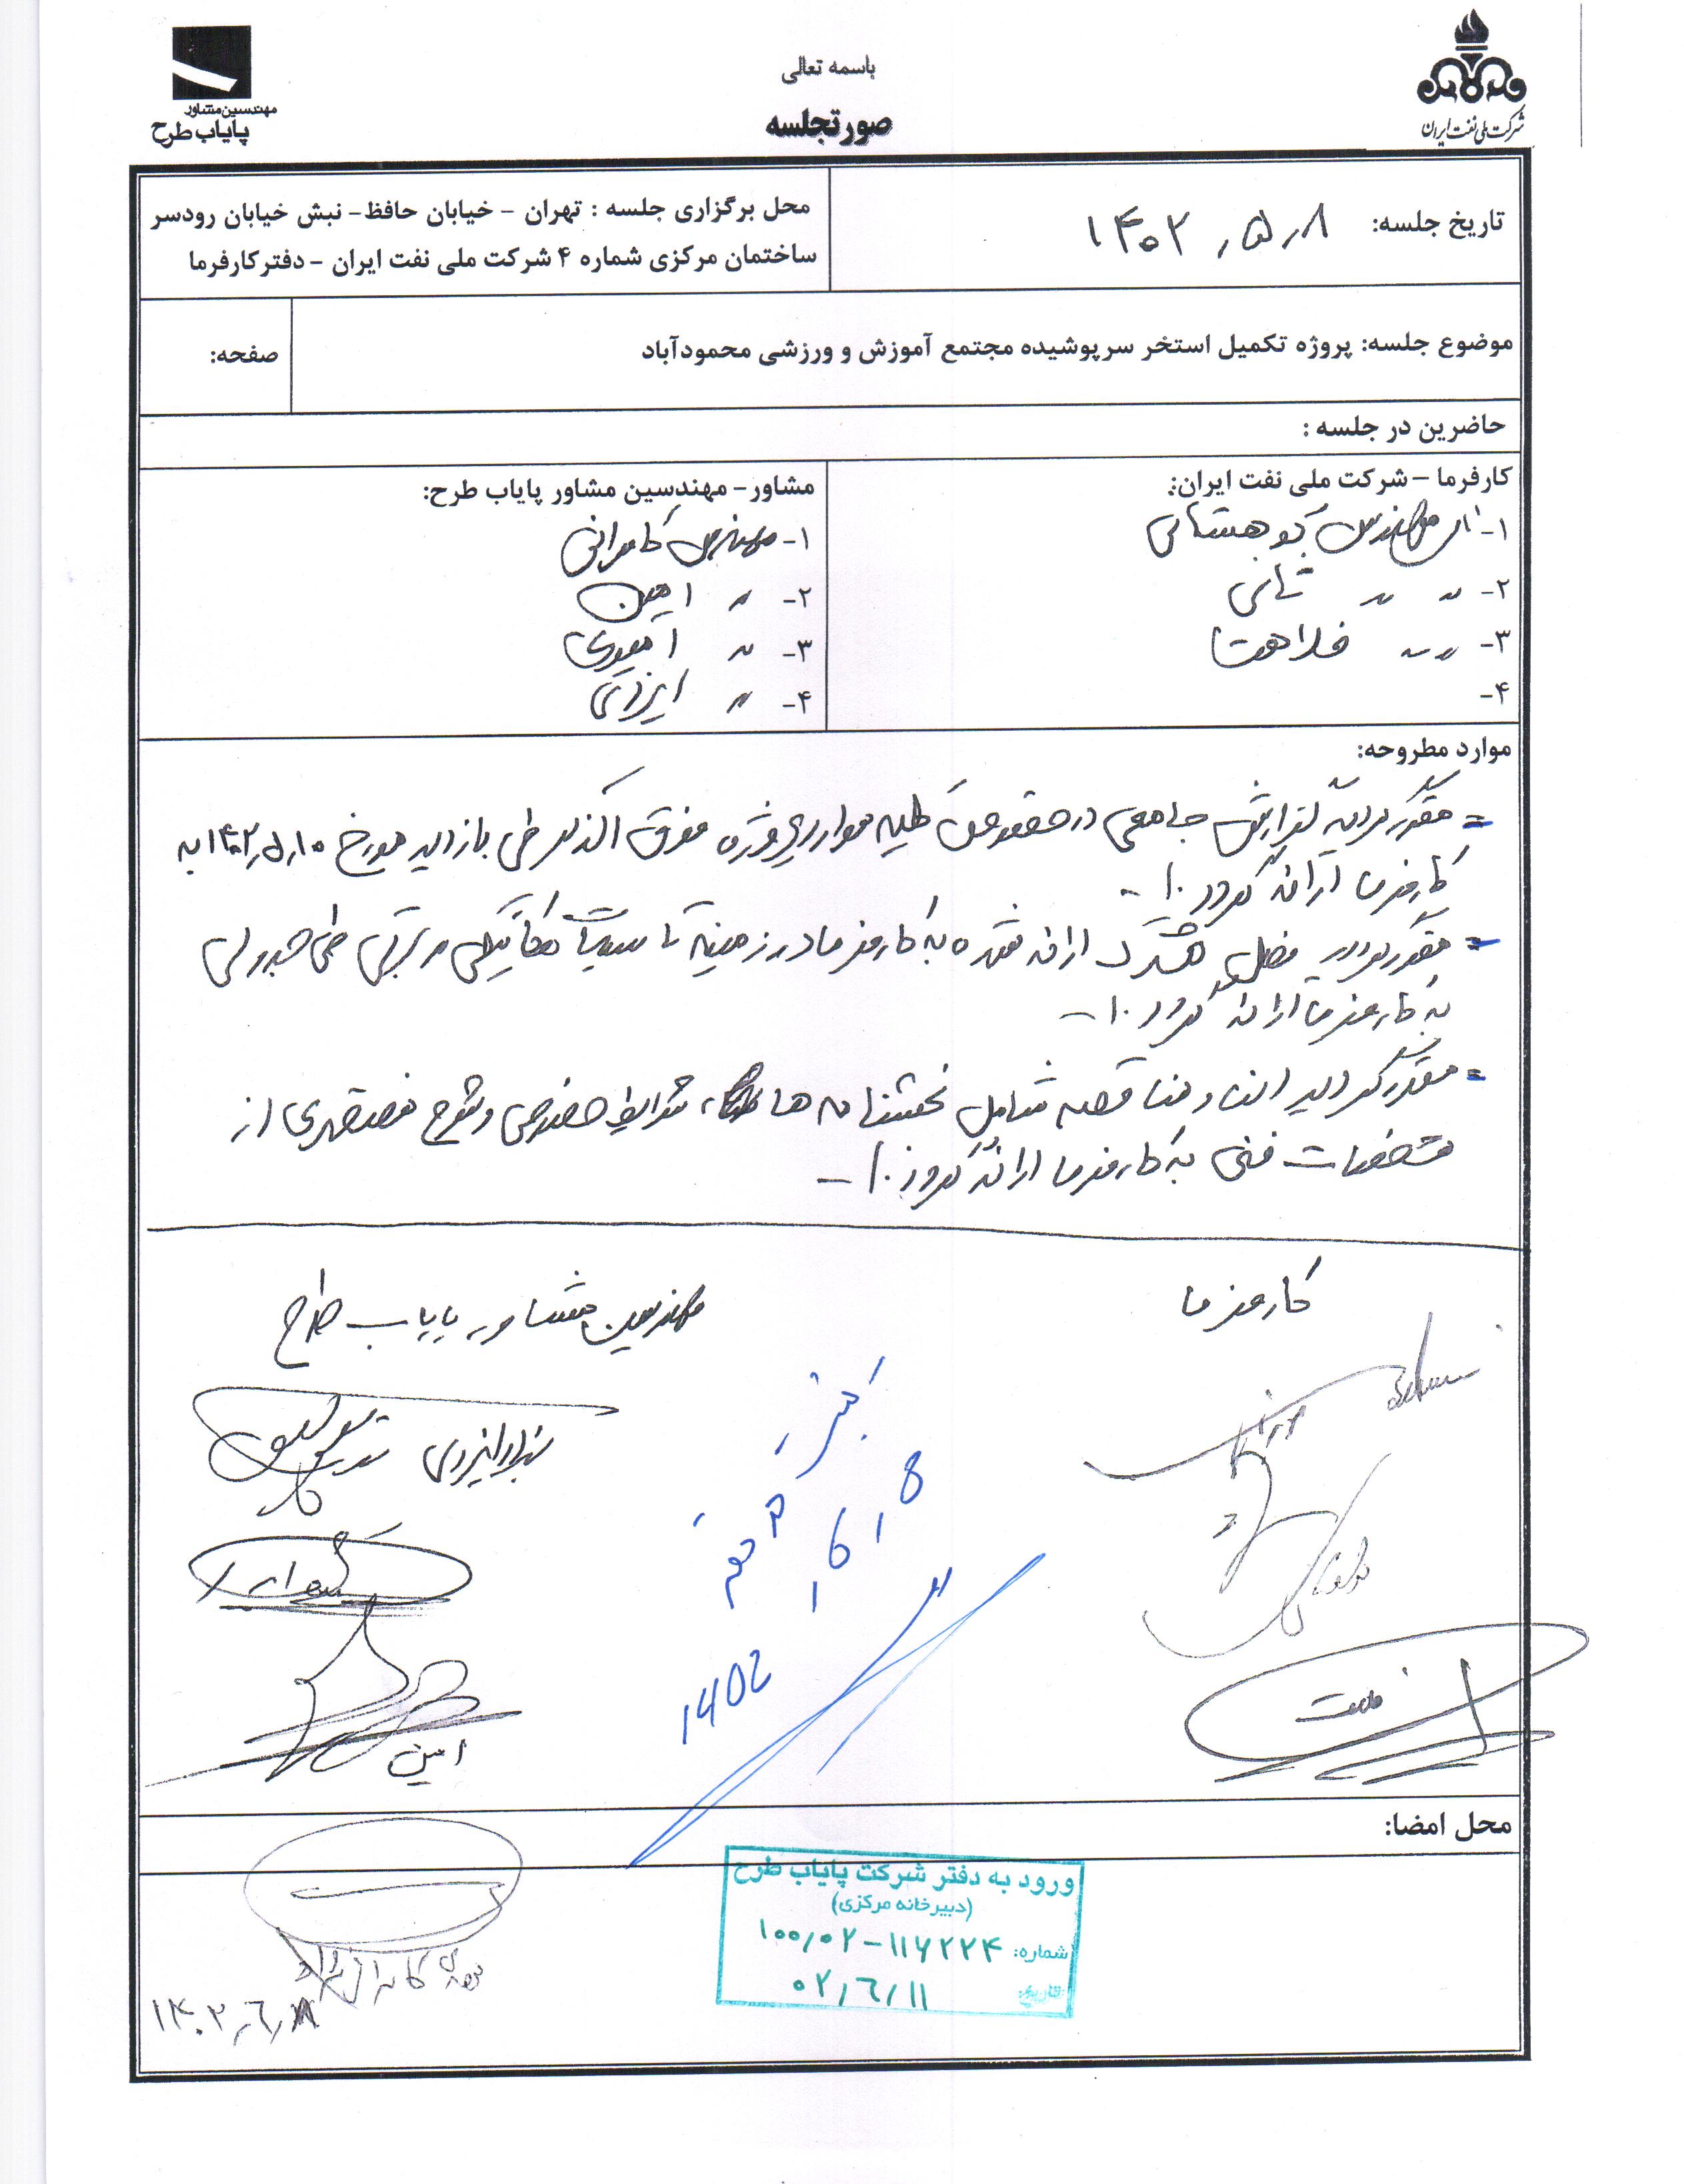 باسمه تعالی
صورتجلسه
شرکت ملی نفت ایران
مهندسین مشاور
پایاب طرح
تاریخ جلسه: ۱۴۰۲,۵,۸
محل برگزاری جلسه : تهران - خیابان حافظ- نبش خیابان رودسر
ساختمان مرکزی شماره ۴ شرکت ملی نفت ایران - دفترکارفرما
موضوع جلسه: پروژه تکمیل استخر سرپوشیده مجتمع آموزش و ورزشی محمودآباد
صفحه:
حاضرین در جلسه :
کارفرما – شرکت ملی نفت ایران:
۱- مهندس
۲- " "
۳- " " فلاحت
۴-
مشاور- مهندسین مشاور پایاب طرح:
۱- مهندس کامرانی
۲- " امین
۳- "
۴- " ایزدی
موارد مطروحه:
= مقرر گردید گزارش جامعی در خصوص کلیه موارد پروژه فوق الذکر طی بازدید مورخ ۱۴۰۲,۵,۱۰ به
کارفرما ارائه گردد.
= مقرر گردید ارائه شده به کارفرما در زمینه تاسیسات مکانیکی و برقی طی جدولی
به کارفرما ارائه گردد.
= مقرر گردید اسناد مناقصه شامل بخشنامه ها، شرایط خصوصی و شرح مختصری از
مشخصات فنی به کارفرما ارائه گردد.
کارفرما
مهندسین مشاور پایاب طرح
ایزدی
فلاحت
امین
8 , 6 ,
1402
محل امضا:
ورود به دفتر شرکت پایاب طرح
(دبیرخانه مرکزی)
شماره: ۱۰۰/۰۲-۱۱۶۲۲۴
تاریخ: ۰۲/٦/۱۱
۱۴۰۲,٦,۸